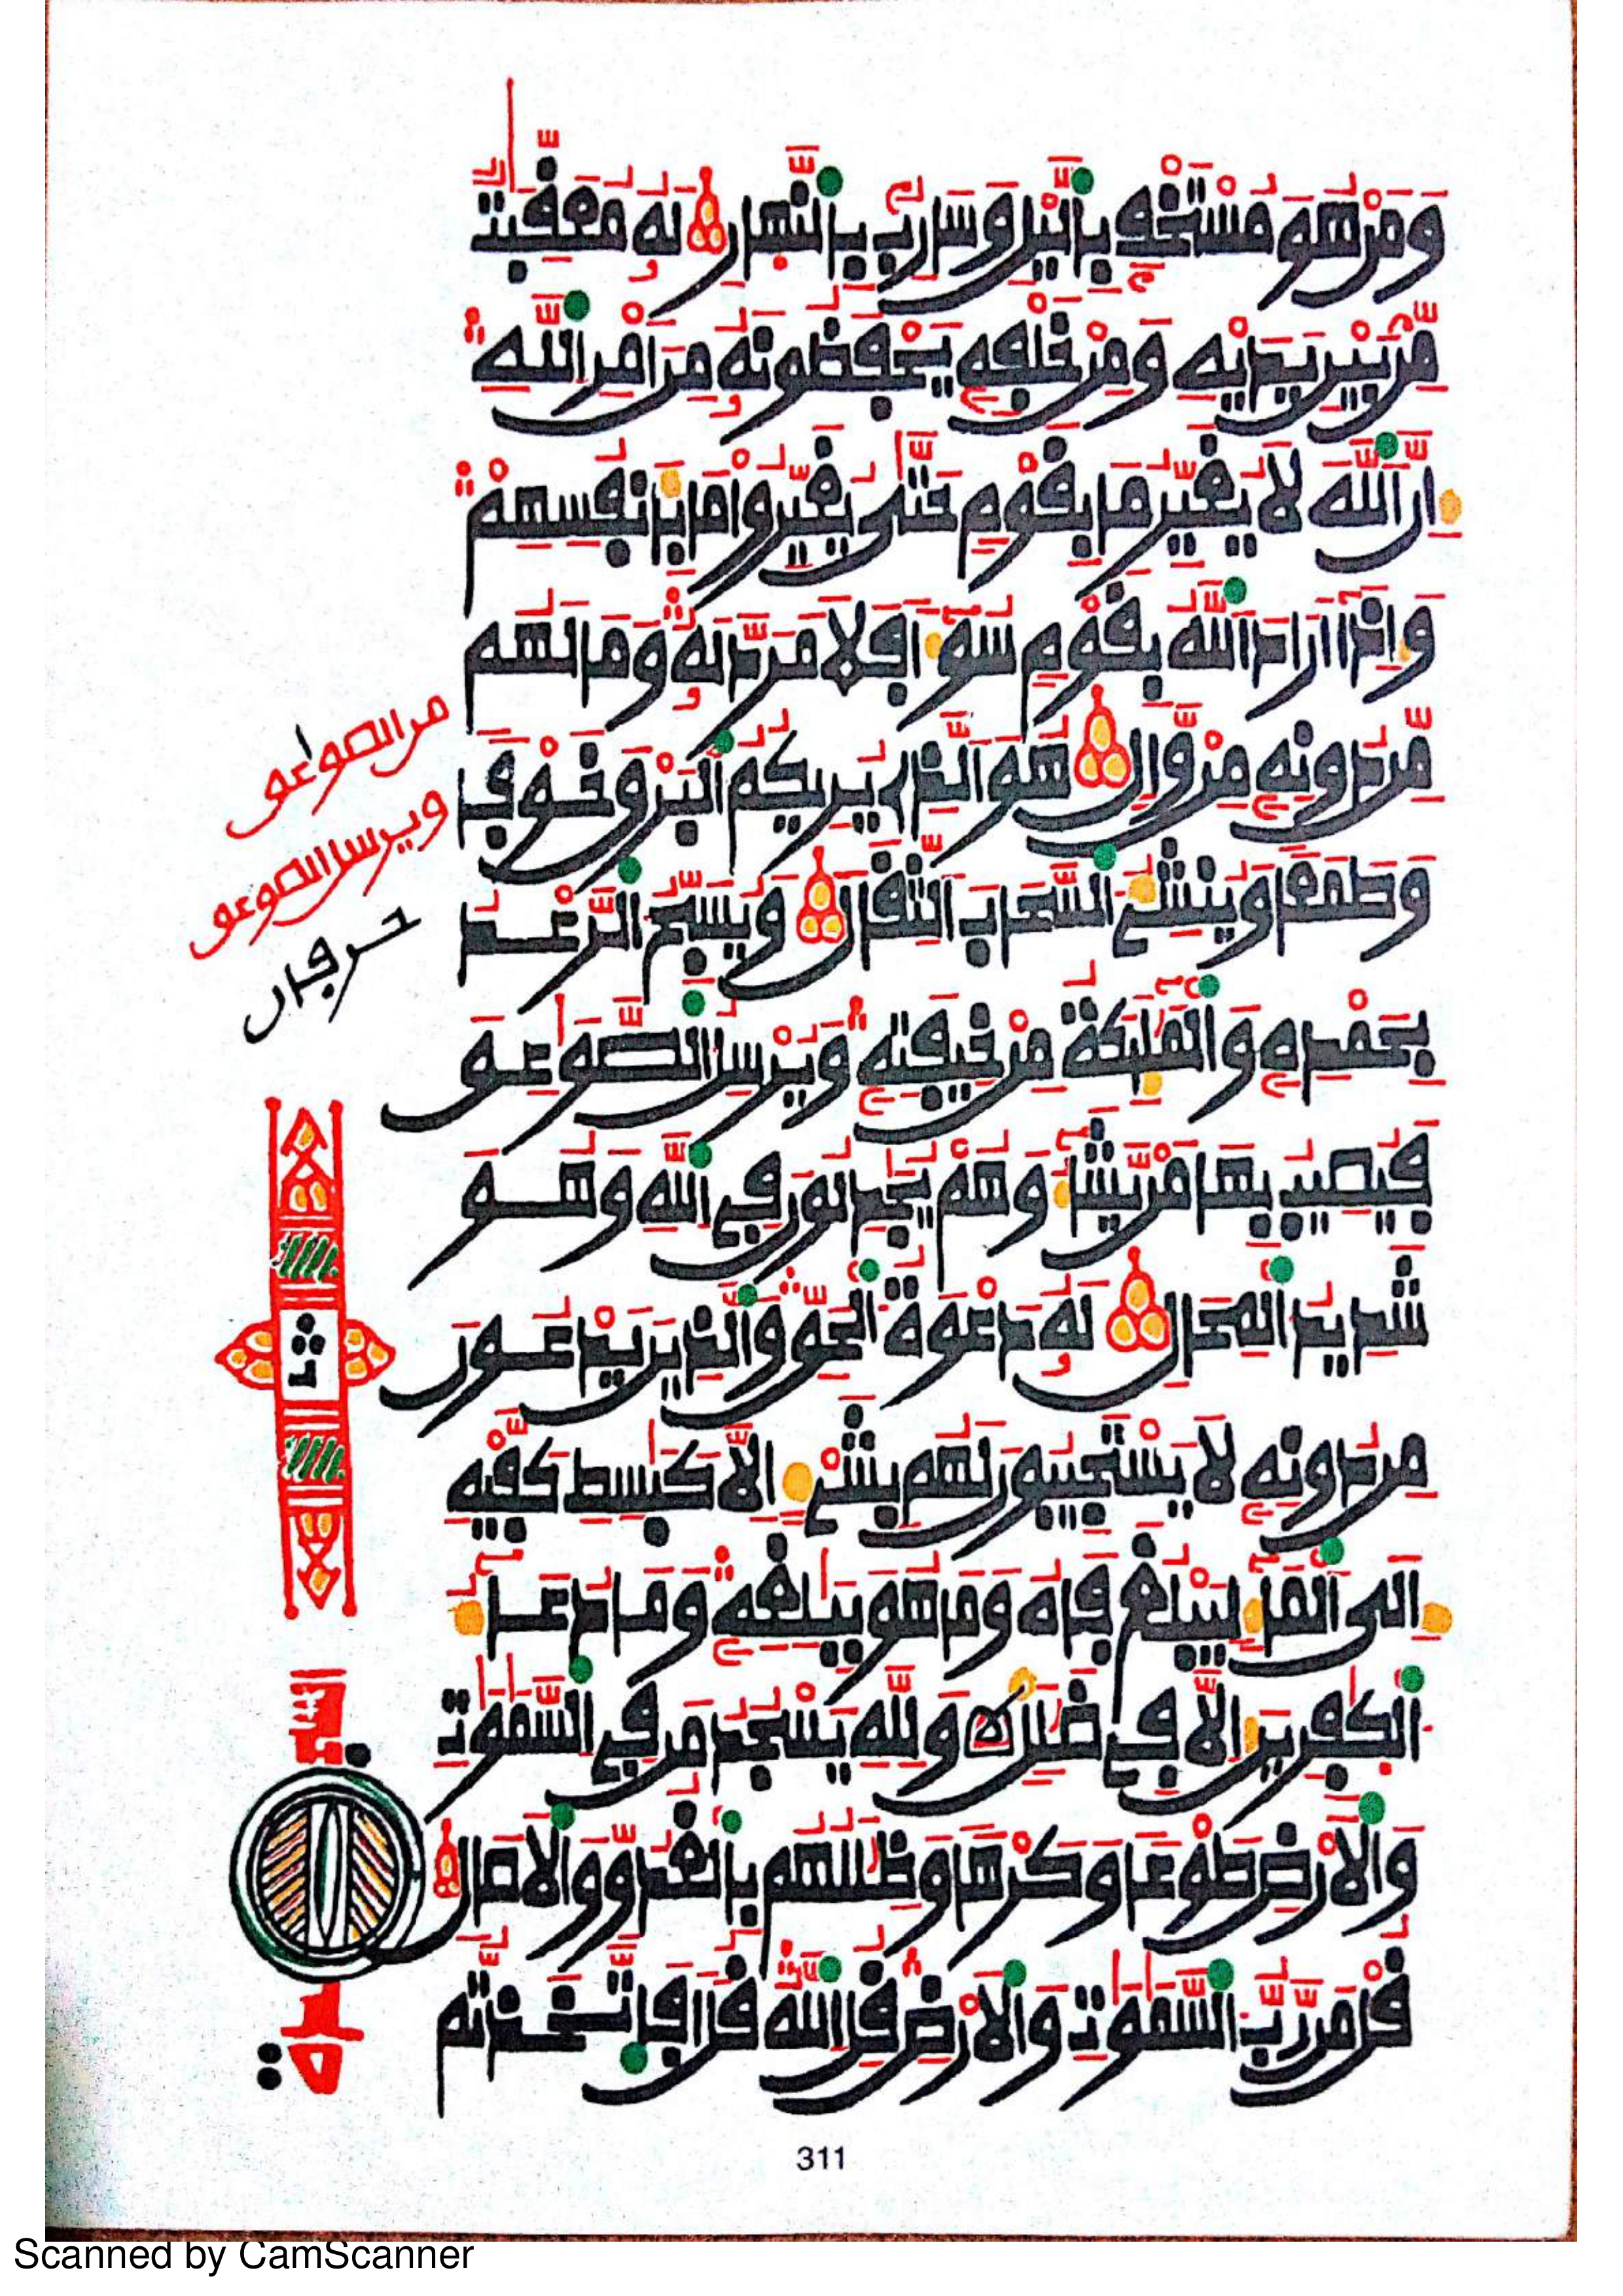 وَمَنْ هُوَ مُسْتَخْفٍ بِالَّيْلِ وَسَارِبٌ بِالنَّهَارِ لَهُ مُعَقِّبَٰتٌ
مِّنۢ بَيْنِ يَدَيْهِ وَمِنْ خَلْفِهِ يَحْفَظُونَهُ مِنَ امْرِ اللَّهِ
إِنَّ اللَّهَ لَا يُغَيِّرُ مَا بِقَوْمٍ حَتَّىٰ يُغَيِّرُوا مَا بِأَنفُسِهِمْ
وَإِذَا أَرَادَ اللَّهُ بِقَوْمٍ سُوٓءًا فَلَا مَرَدَّ لَهُ وَمَا لَهُم
مِّن دُونِهِ مِنْ وَّالٍ هُوَ الَّذِي يُرِيكُمُ الْبَرْقَ خَوْفًا
وَطَمَعًا وَيُنشِئُ السَّحَابَ الثِّقَالَ وَيُسَبِّحُ الرَّعْدُ
بِحَمْدِهِ وَالْمَلَٰٓئِكَةُ مِنْ خِيفَتِهِ وَيُرْسِلُ الصَّوَٰعِقَ
فَيُصِيبُ بِهَا مَنْ يَّشَآءُ وَهُمْ يُجَٰدِلُونَ فِي اللَّهِ وَهُوَ
شَدِيدُ الْمِحَالِ لَهُ دَعْوَةُ الْحَقِّ وَالَّذِينَ يَدْعُونَ
مِن دُونِهِ لَا يَسْتَجِيبُونَ لَهُم بِشَيْءٍ إِلَّا كَبَٰسِطِ كَفَّيْهِ
إِلَى الْمَآءِ لِيَبْلُغَ فَاهُ وَمَا هُوَ بِبَٰلِغِهِ وَمَا دُعَآءُ
الْكَٰفِرِينَ إِلَّا فِي ضَلَٰلٍ وَلِلَّهِ يَسْجُدُ مَن فِي السَّمَٰوَٰتِ
وَالْأَرْضِ طَوْعًا وَكَرْهًا وَظِلَٰلُهُم بِالْغُدُوِّ وَالْأَصَالِ
قُلْ مَن رَّبُّ السَّمَٰوَٰتِ وَالْأَرْضِ قُلِ اللَّهُ قُلْ أَفَاتَّخَذتُّم
من الصواعق
ويرسل الصوعق
حرفان
ثمن
سجدة
311
Scanned by CamScanner